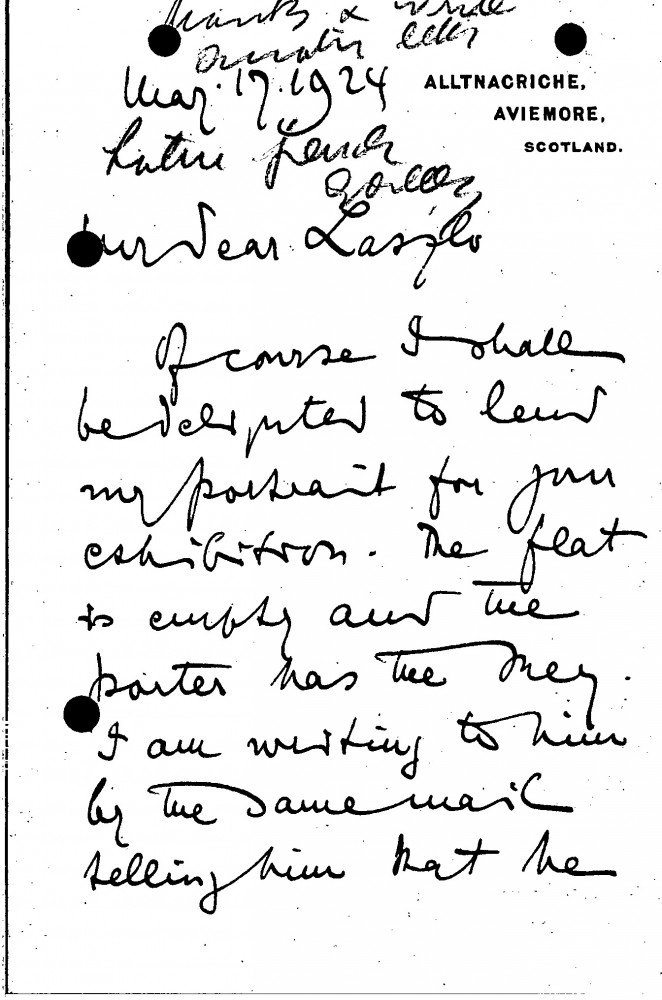 thanks & write
another letter
May. 17. 1924
ALLTNACRICHE,
AVIEMORE,
SCOTLAND.
French
Gallery
My dear László
Of course I shall
be delighted to lend
my portrait for your
exhibition. The flat
is empty and the
porter has the key.
I am writing to him
by the same mail
telling him that he